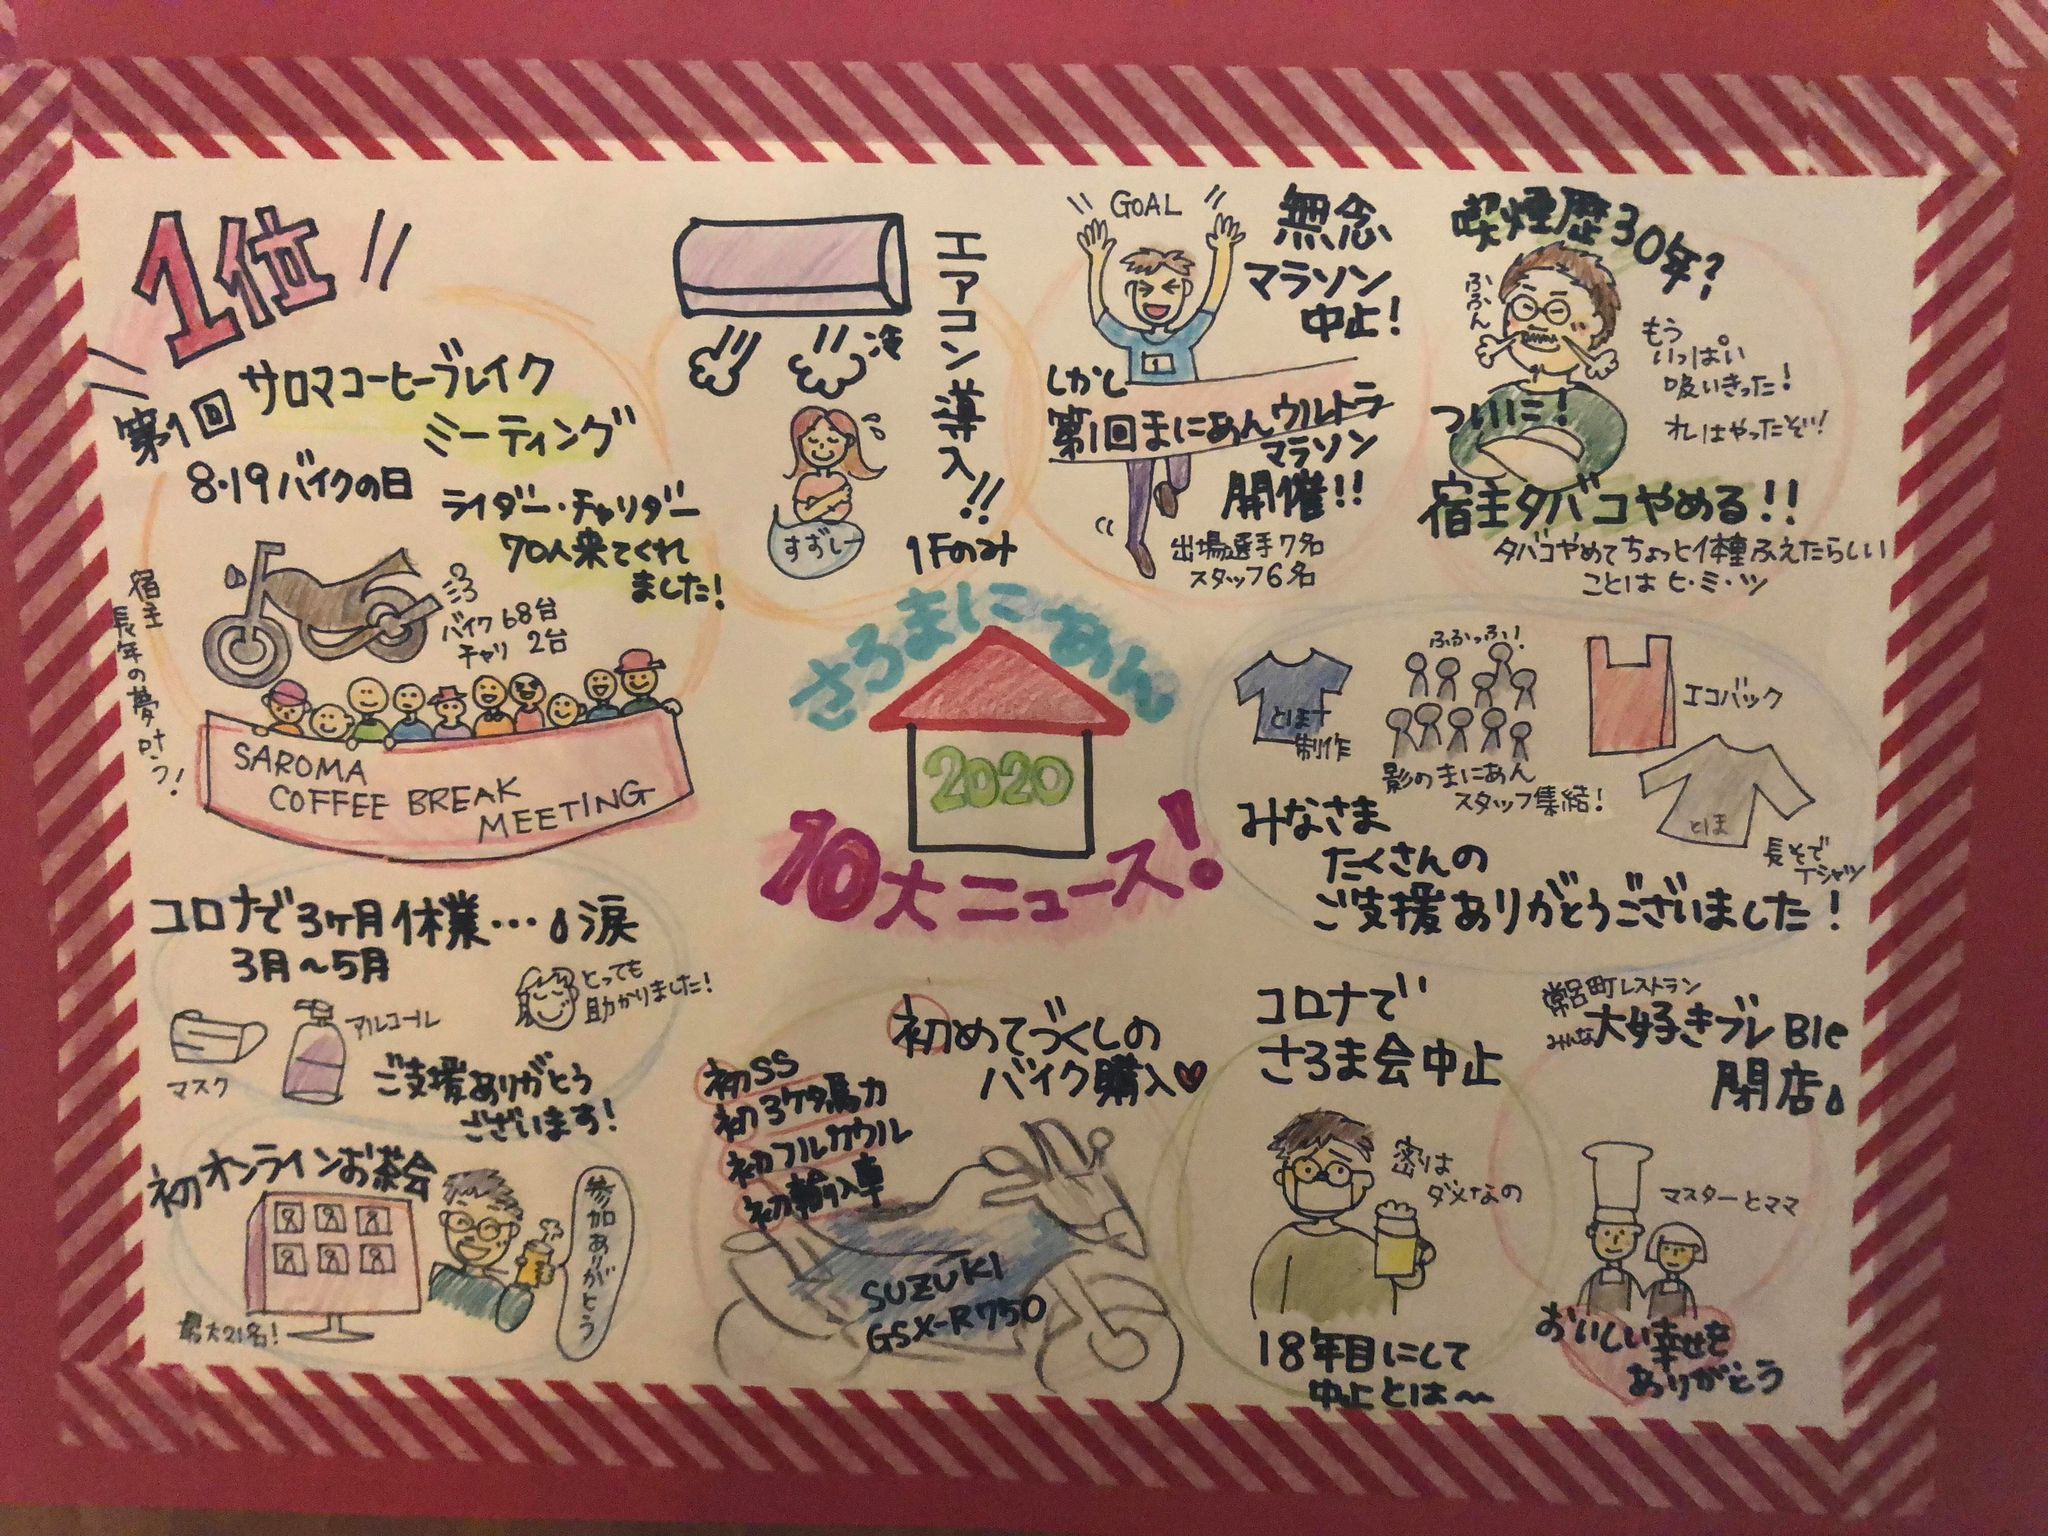 1位
第1回 サロマコーヒーブレイク
ミーティング
8・19 バイクの日
ライダー・チャリダー
70人来てくれ
ました!
バイク 68台
チャリ 2台
宿主
長年の夢叶う!
SAROMA
COFFEE BREAK
MEETING
エアコン導入!!
1Fのみ
すずしー
GOAL
無念
マラソン
中止!
しかし
第1回まにあんウルトラ
マラソン
開催!!
出場選手7名
スタッフ6名
喫煙歴30年?
ふふん
もう
いっぱい
吸いきった!
オレはやったぞ!
ついに!
宿主タバコやめる!!
タバコやめてちょっと体重ふえたらしい
ことは ヒ・ミ・ツ
さろまにあん
2020
10大ニュース!
制作
ふふっふ!
影のまにあん
スタッフ集結!
エコバック
とほ
長そで
Tシャツ
みなさま
たくさんの
ご支援ありがとうございました!
コロナで3ヶ月休業…涙
3月〜5月
マスク
アルコール
とっても
助かりました!
ご支援ありがとう
ございます!
初オンラインお茶会
最大21名!
参加ありがとう
初めてづくしの
バイク購入♥
初SS
初3ケタ馬力
初フルカウル
初輸入車
SUZUKI
GSX-R750
コロナで
さろま会中止
密は
ダメなの
18年目にして
中止とは〜
常呂町レストラン
みんな大好きブレBle
閉店
マスターとママ
おいしい幸せを
ありがとう